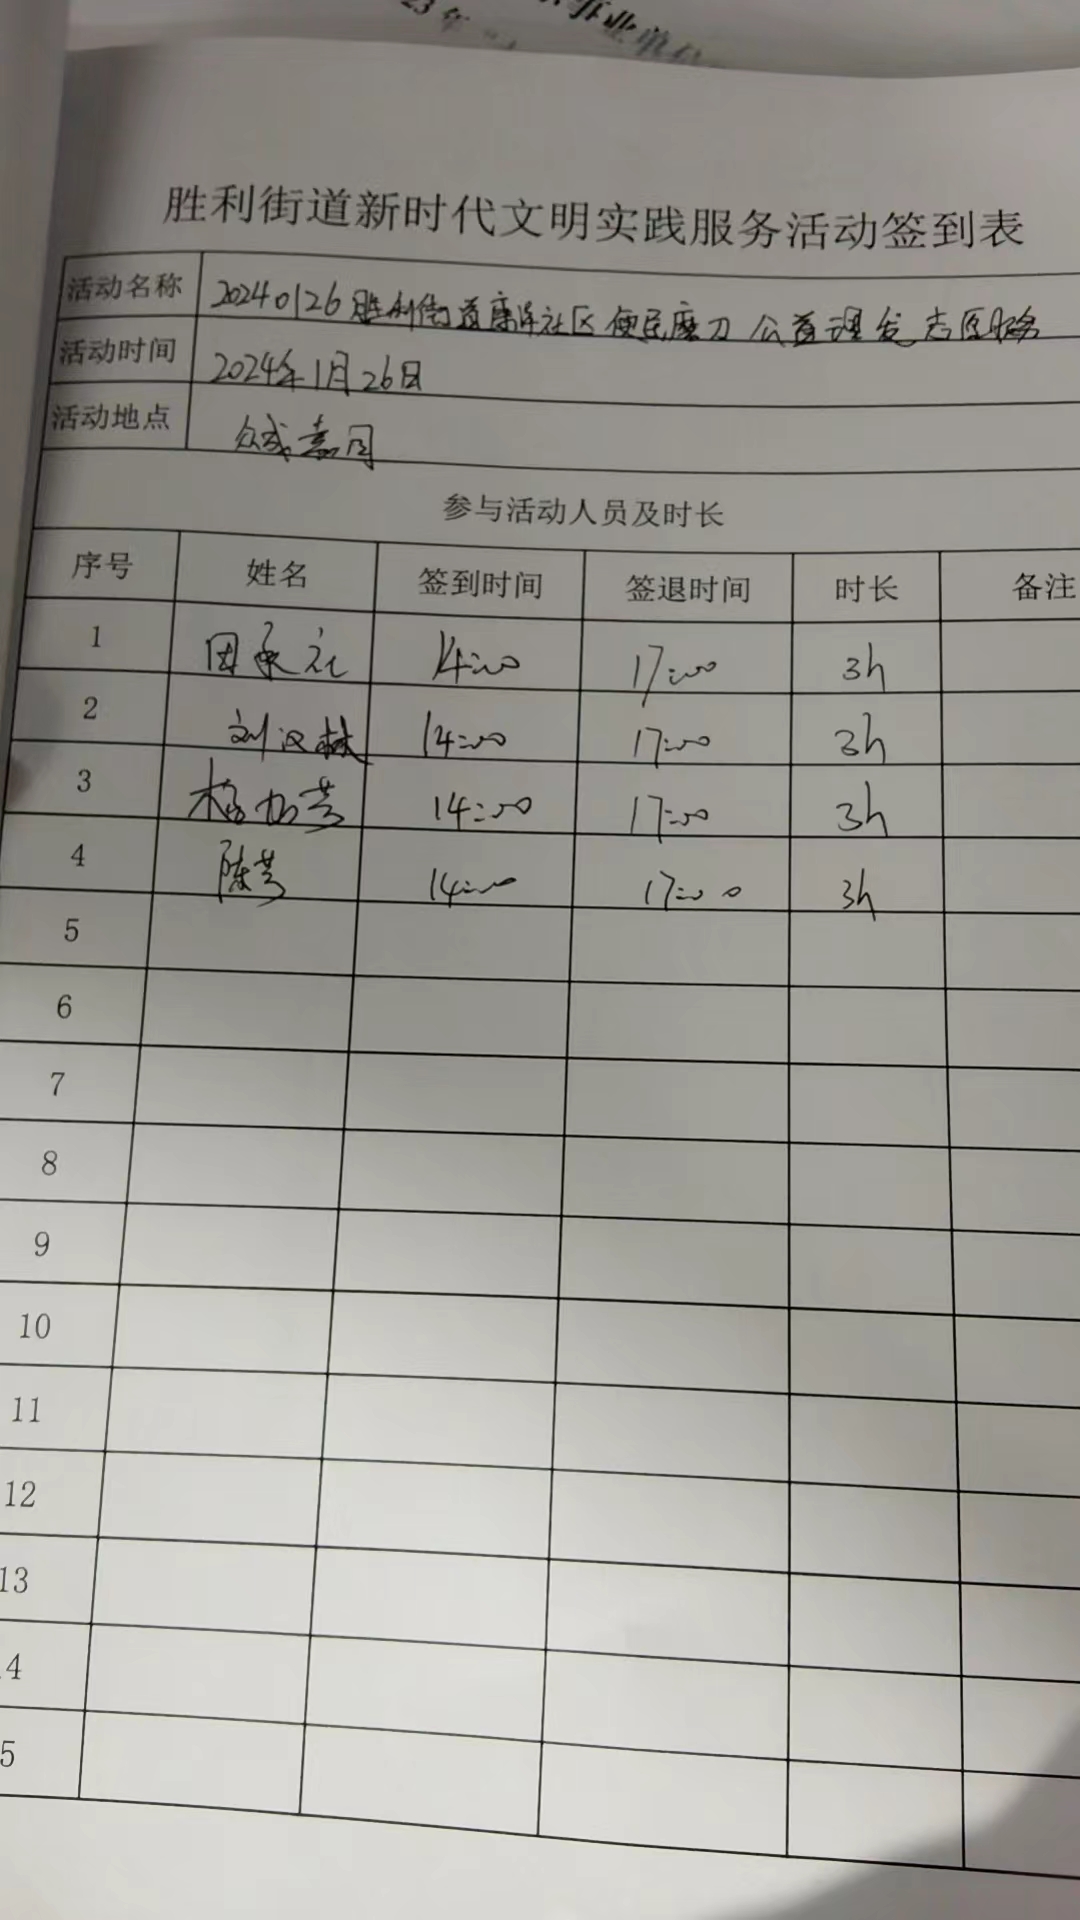 23年
事业单位
胜利街道新时代文明实践服务活动签到表
活动名称 20240126胜利街道康泽社区便民磨刀 公益理发志愿服务
活动时间 2024年1月26日
活动地点 众成嘉园
参与活动人员及时长
序号 姓名 签到时间 签退时间 时长 备注
1 14:00 17:00 3h
2 刘汉林 14:00 17:00 3h
3 14:00 17:00 3h
4 陈芳 14:00 17:00 3h
5
6
7
8
9
10
11
12
13
4
5